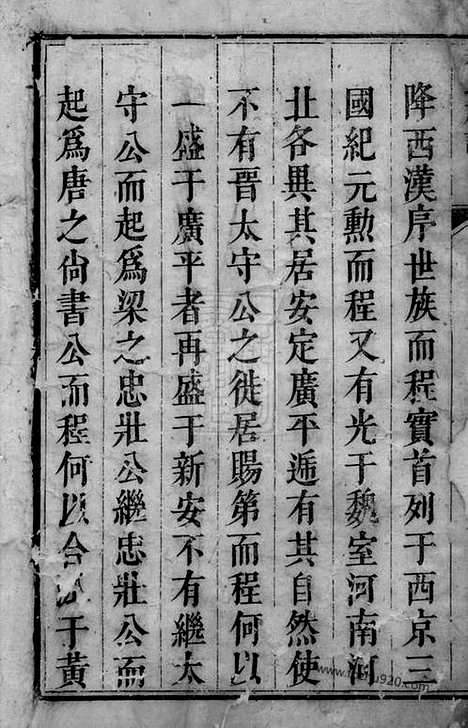 降西漢序世族而程實首列于西京三
國紀元勳而程又有光于魏室河南河
北各異其居安定廣平遞有其自然使
不有晉太守公之徙居賜第而程何以
一盛于廣平者再盛于新安不有繼太
守公而起爲梁之忠壯公繼忠壯公而
起爲唐之尙書公而程何以合于黃